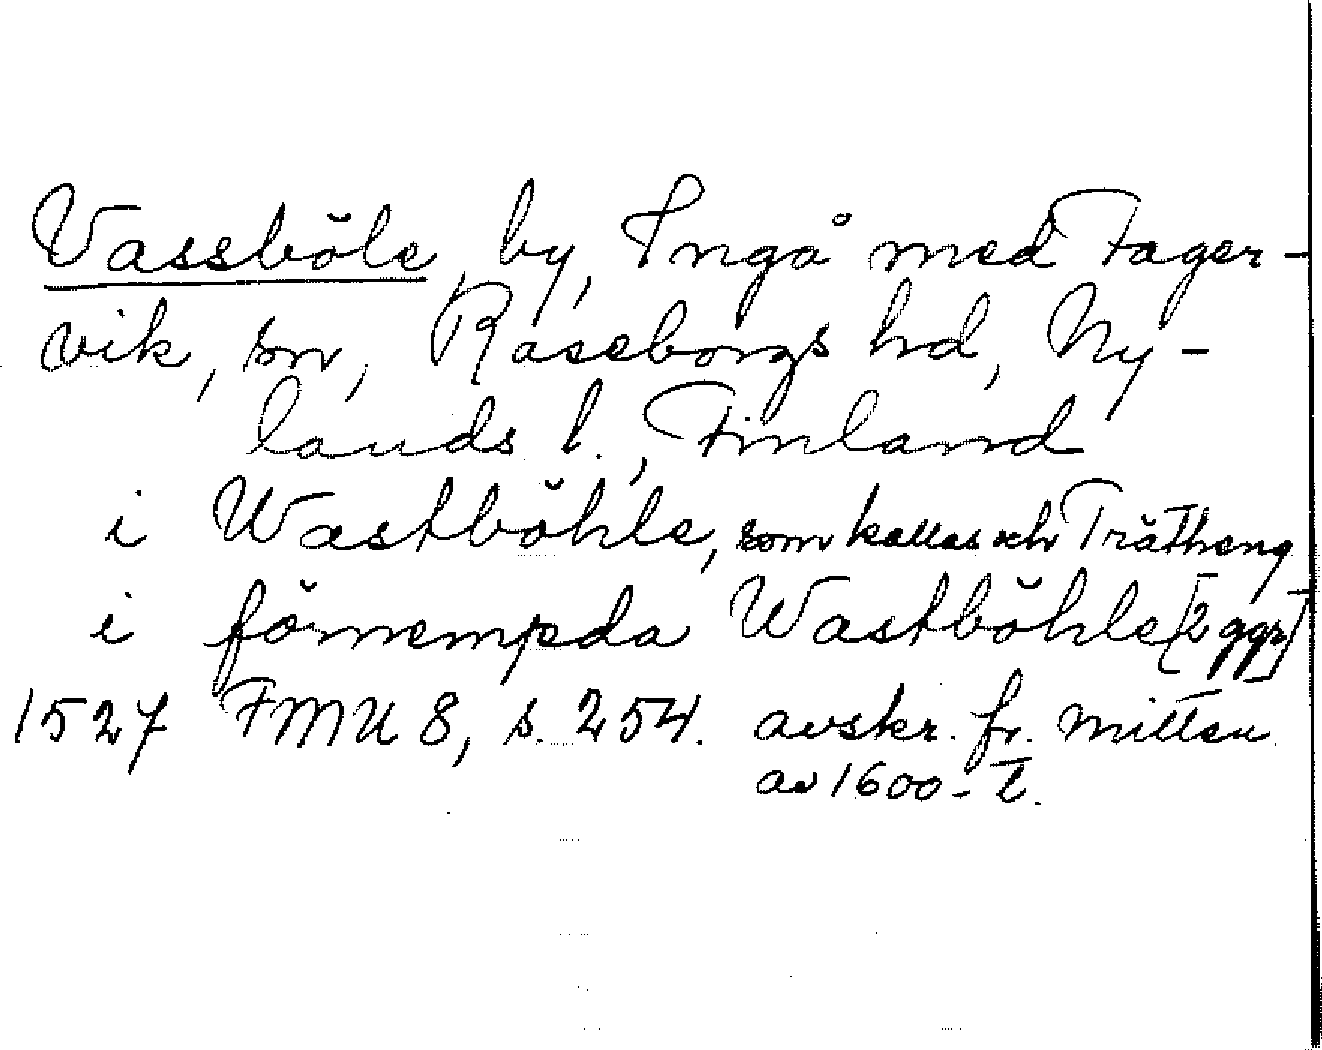 Vassböle, by, Ingå med Fager-
vik, sn, Raseborgs hd, Ny-
lands l., Finland
i Wastböhle, som kallas och Trätheng
i förnempda Wastböhle [2 ggr]
1527 FMU 8, s. 254. avskr. fr. mitten
av 1600-t.